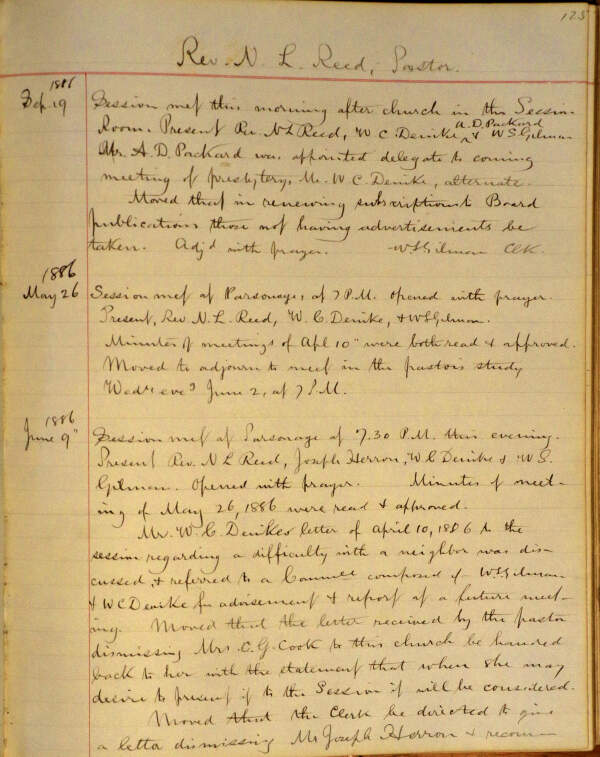 125
Rev. N. L. Reed, Pastor.
1886
Sep. 19
Session met this morning after church in the Session
A. D. Packard
Room. Present Rev. N L Reed, W C Denike, & W S Gilman
Mr. A. D. Packard was appointed delegate to coming
meeting of presbytery, Mr. W C Denike, alternate.
Moved that in renewing subscriptions to Board
publications those not having advertisements be
taken. Adj'd with prayer. W S Gilman Clk.
1886
May 26
Session met at Parsonage, at 7 P.M. opened with prayer.
Present, Rev N. L. Reed, W. C. Denike, & W S Gilman.
Minutes of meetings of Apl 10" were both read & approved.
Moved to adjourn to meet in the pastors study
Wed" eve" June 2, at 7 P.M.
1886
June 9"
Session met at Parsonage at 7.30 P.M. this evening.
Present Rev. N L Reed, Joseph Herron, W C Denike & W S.
Gilman. Opened with prayer. Minutes of meet-
ing of May 26, 1886 were read & approved.
Mr. W. C. Denikes letter of April 10, 1886 to the
session regarding a difficulty with a neighbor was dis-
cussed, & referred to a Committee composed of W S Gilman
& W C Denike for advisement & report at a future meet-
ing. Moved that the letter received by the pastor
dismissing Mrs. C. G. Cook to this church be handed
back to her with the statement that when she may
desire to present it to the Session it will be considered.
Moved that the Clerk be directed to give
a letter dismissing Mr Joseph Herron & recom-